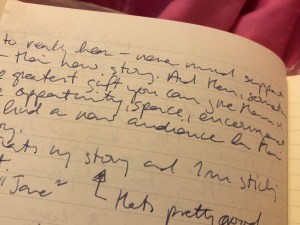 to really hear – never mind support
– their new story. And then, sometimes
greatest gift you can give them is
opportunity, space, encouragement
find a new audience for their
story.
That's my story and I'm sticking
"Jane"
that's pretty good